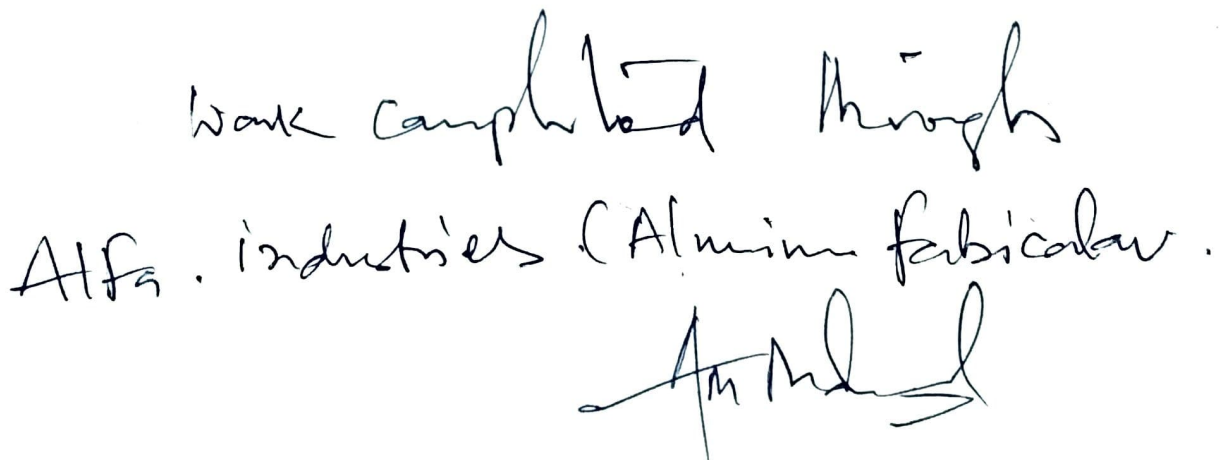 Work complited through
Alfa. industries (Alminim fabicator.